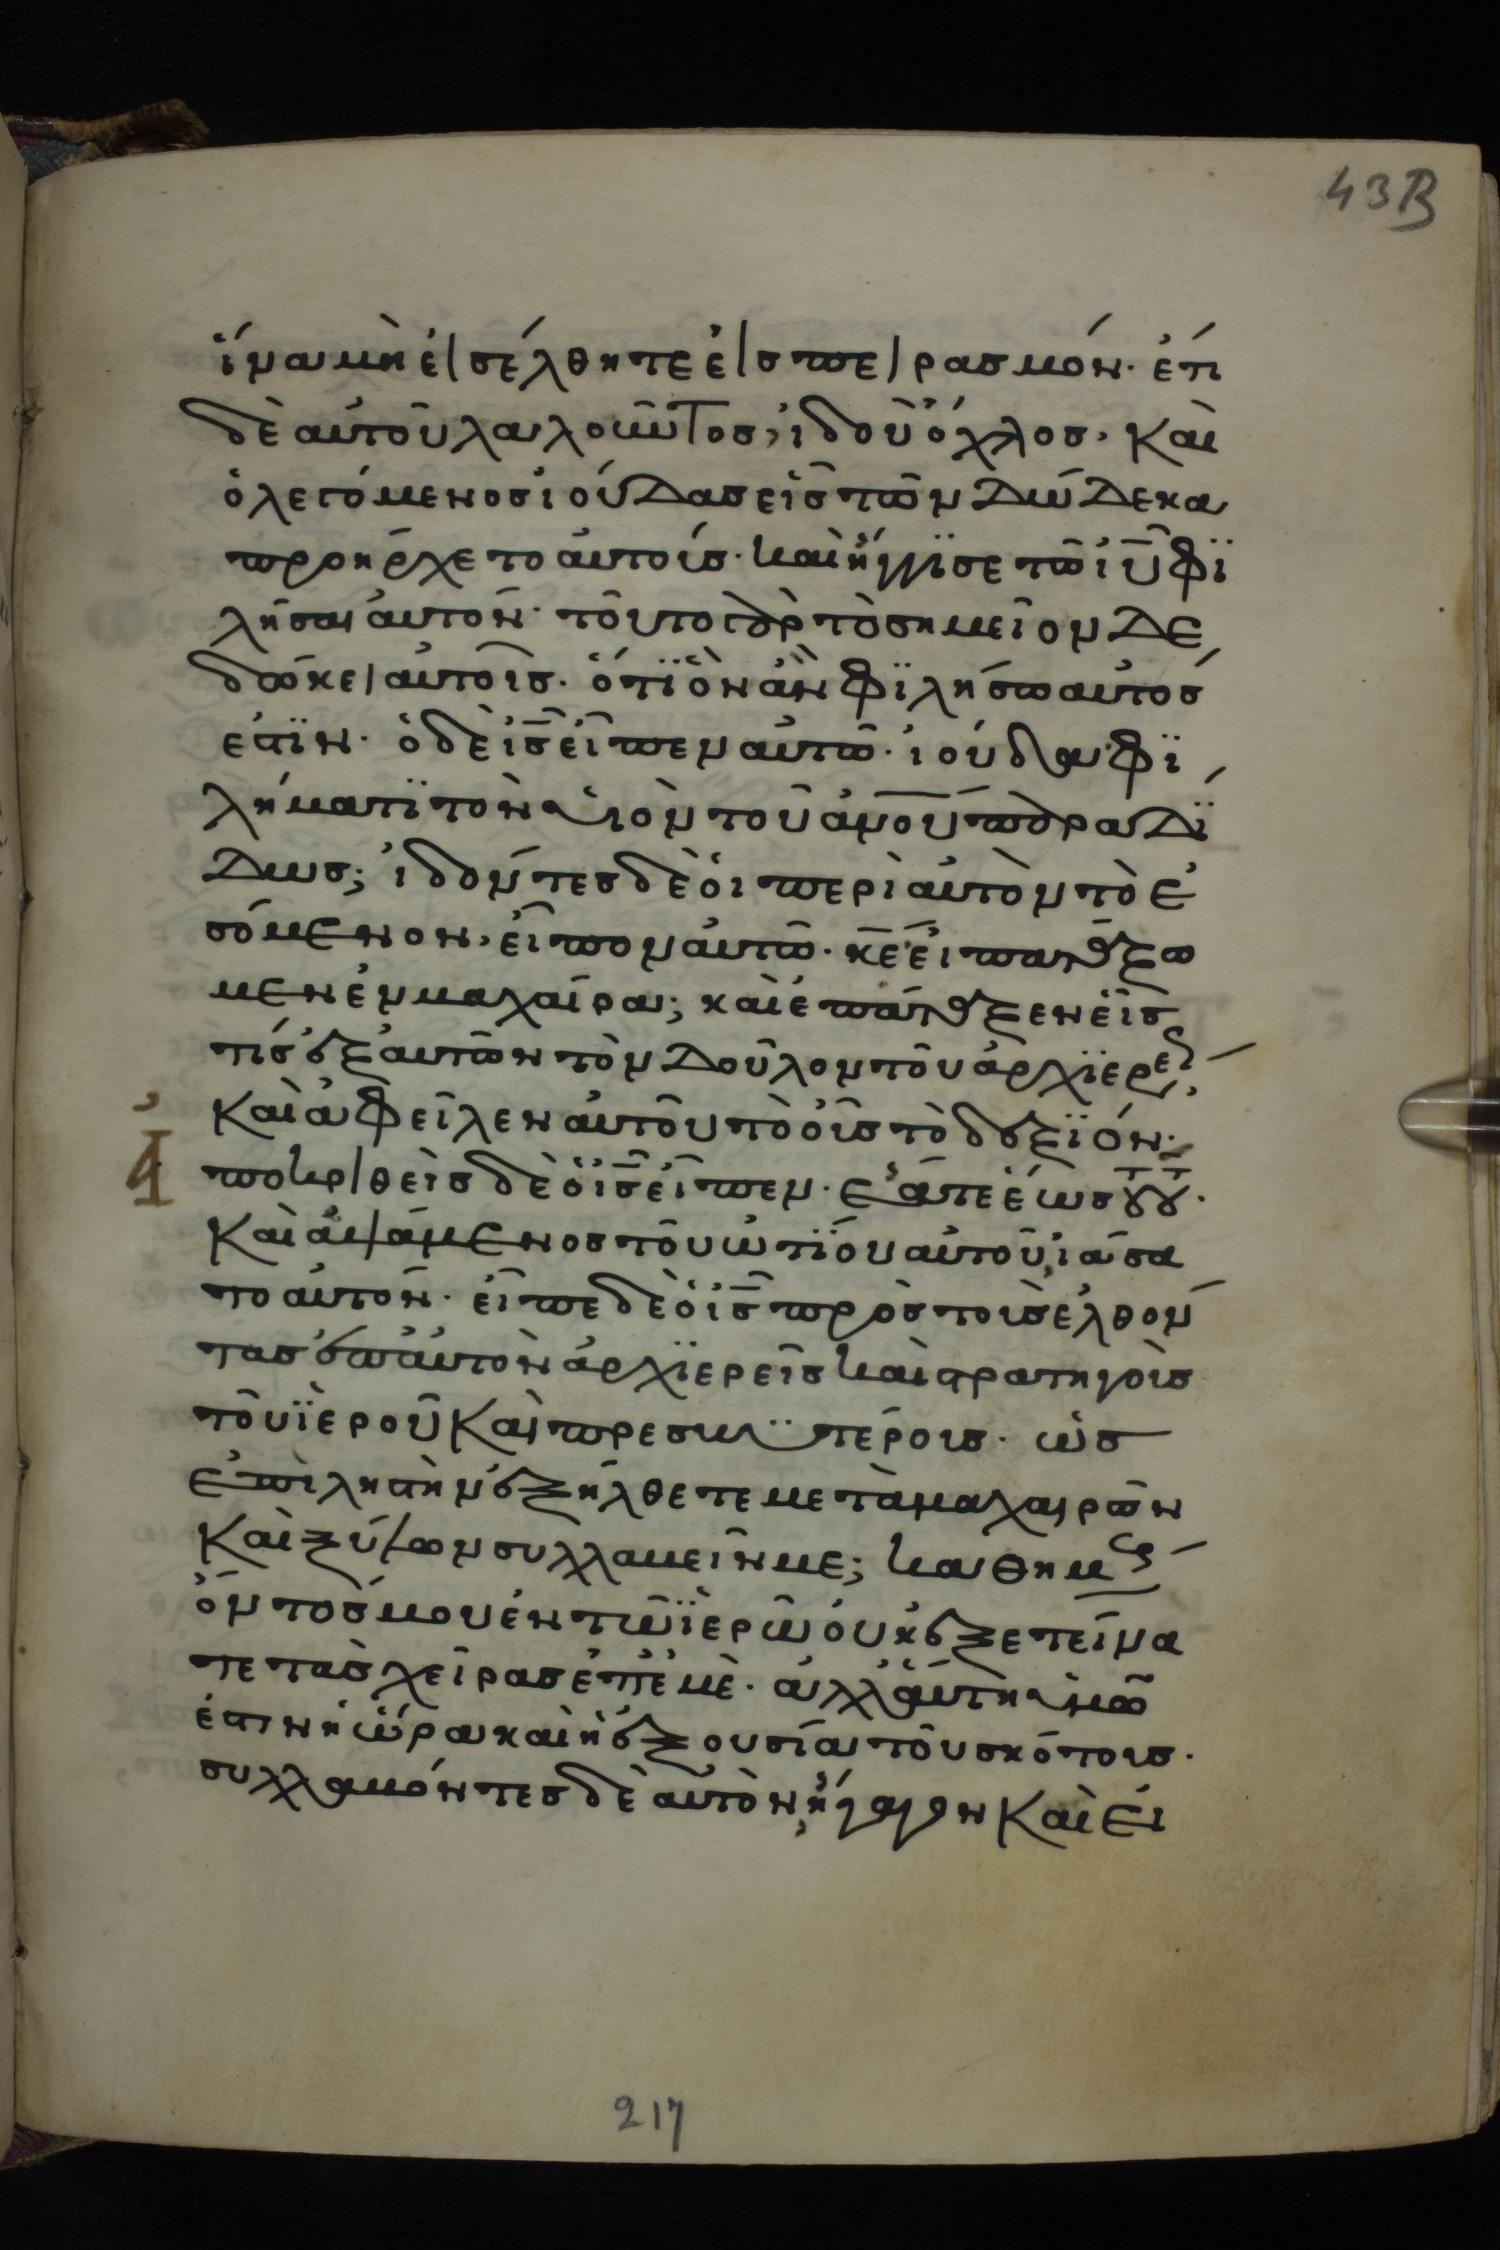 43B
ἵνα μὴ εἰσέλθητε εἰς πειρασμόν. ἔτι
δὲ αὐτοῦ λαλοῦντος, ἰδοῦ ὄχλος, καὶ
ὁ λεγόμενος ἰούδας εἷς τῶν δώδεκα
προήρχετο αὐτοίς. καὶ ἤγγϊσε τῶ ιῦ φϊ
λῆσαι αὐτόν. τοῦτο γὰρ τὸ σημεῖον δε
δώκει αὐτοῖς. ὅτϊ ὃν ἂν φϊλήσω αὐτός
ἐστϊν. ὁ δὲ ις εἶπεν αὐτῶ. ἰούδα φϊ
λήματϊ τὸν υἱὸν τοῦ ανου παραδϊ
δως; ἰδόντες δὲ οἱ περὶ αὐτὸν τὸ ἐ
σόμενον, εἶπον αὐτῶ. κε εἰ πατάξω
μεν ἐν μαχαίρα; καὶ ἐπάταξεν εἷς
τίς ἐξ αὐτῶν τὸν δοῦλον τοῦ ἀρχϊερέως,
καὶ ἀφεῖλεν αὐτοῦ τὸ οὖς τὸ δεξϊόν.
ἀ
ποκριθεὶς δὲ ὁ ις εἶπεν. ἐᾶτε ἕως τούτου.
καὶ ἁψάμενος τοῦ ὠτϊου αὐτοῦ, ἰάσα
το αὐτόν. εἶπε δὲ ὁ ις πρὸς τοὺς ἐλθόν
τας ἐπ αὐτὸν ἀρχϊερεῖς καὶ στρατηγοὺς
τοῦ ϊεροῦ καὶ πρεσβϋτέρους. ὡς
ἐπὶ ληστὴν ἐξήλθετε μετὰ μαχαιρῶν
καὶ ξύλων συλλαβεῖν με; καθ ημέραν
ὄντος μου ἐν τῶ ϊερῶ οὐκ ἐξετείνα
τε τὰς χεῖρας ἐπ ἐμὲ. ἀλλ αὕτη ὑμῶν
ἐστιν ἡ ὥρα καὶ ἡ ἐξουσία τοῦ σκότους.
συλλαβόντες δὲ αὐτὸν, ἤγαγον καὶ εἰ
217